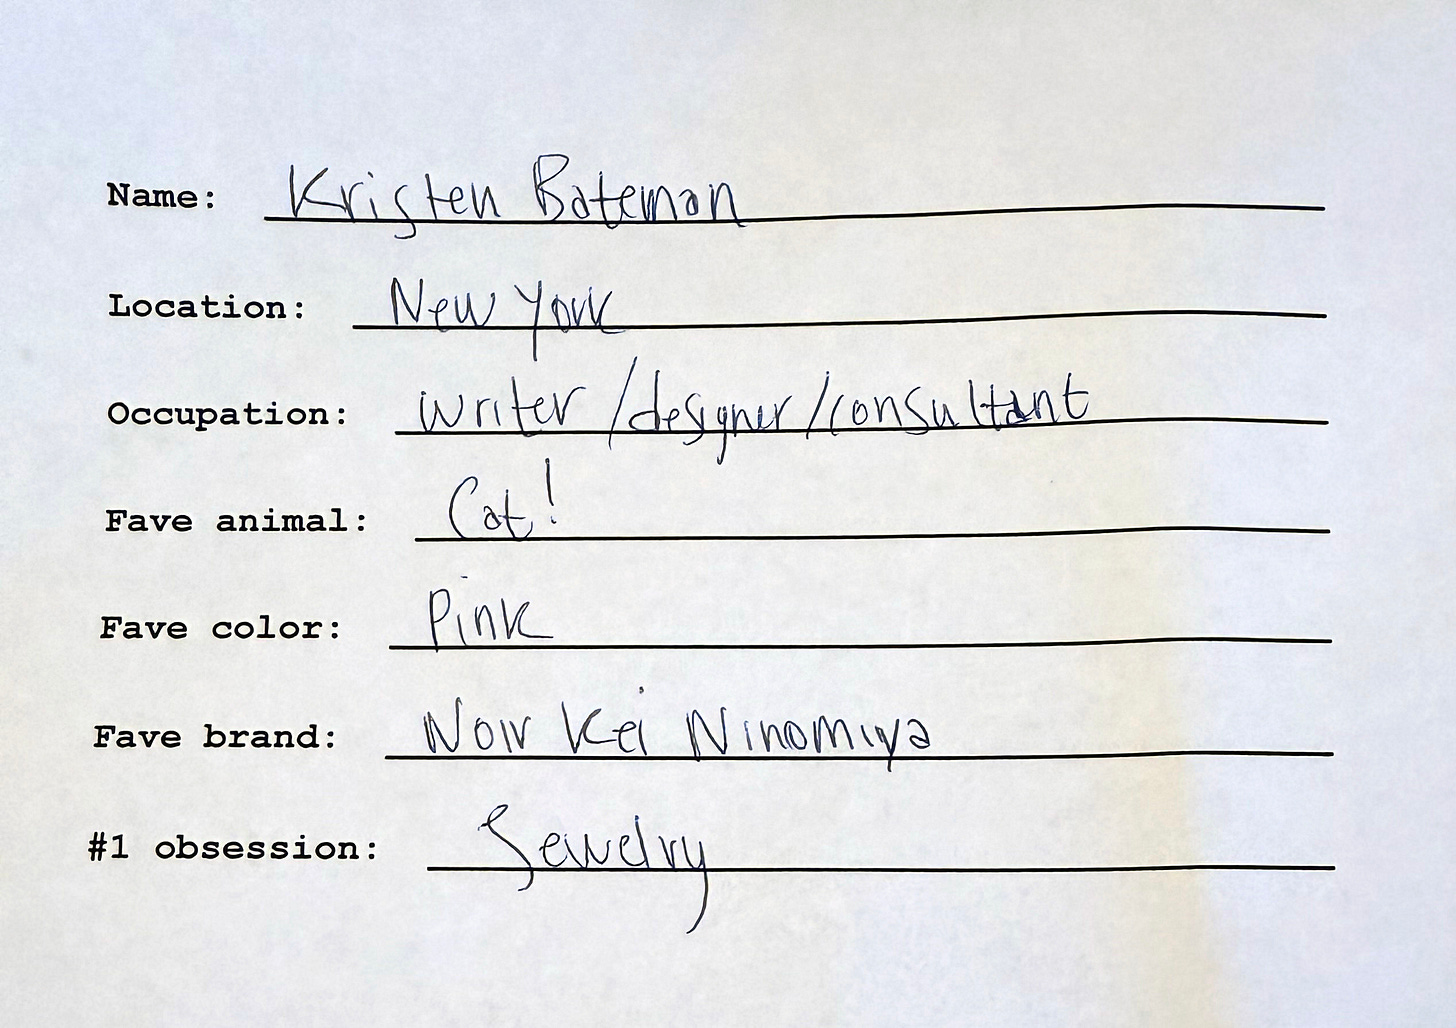 Name: Kristen Bateman
Location: New York
Occupation: writer/designer/consultant
Fave animal: Cat!
Fave color: Pink
Fave brand: Noir Kei Ninomiya
#1 obsession: Jewelry